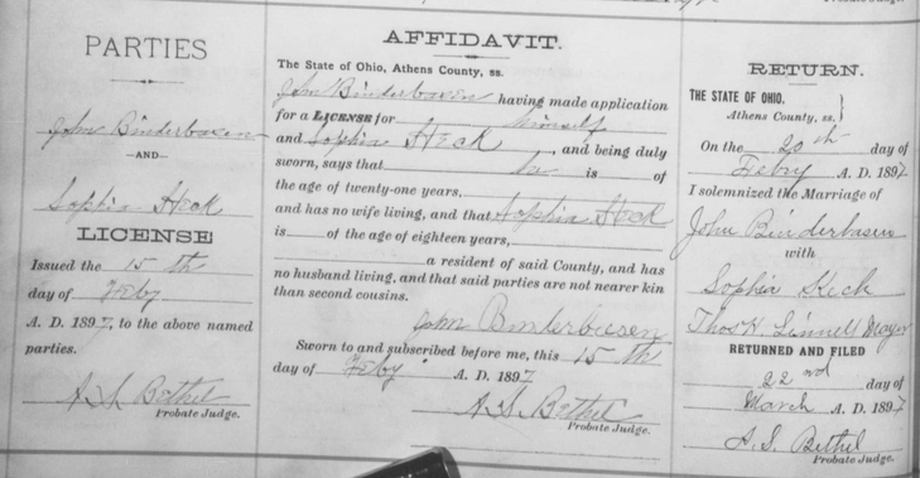 Probate Judge.
PARTIES
John Binderbaxen
—AND—
Sophia Heck
LICENSE
Issued the 15 th
day of Feby
A. D. 1897, to the above named
parties.
A. S. Bethel
Probate Judge.
AFFIDAVIT.
The State of Ohio, Athens County, ss.
John Binderbaxen having made application
for a LICENSE for himself
and Sophia Heck, and being duly
sworn, says that he is of
the age of twenty-one years,
and has no wife living, and that Sophia Heck
is of the age of eighteen years,
a resident of said County, and has
no husband living, and that said parties are not nearer kin
than second cousins.
John Binterbusen
Sworn to and subscribed before me, this 15 th
day of Feby A. D. 1897
A. S. Bethel
Probate Judge.
RETURN.
THE STATE OF OHIO,
Athens County, ss.
On the 20th day of
Febry A. D. 1897
I solemnized the Marriage of
John Binderbasen
with
Sophia Keck
Thos H. Linnell Mayor
RETURNED AND FILED
22nd day of
March A. D. 1897
A. S. Bethel
Probate Judge.